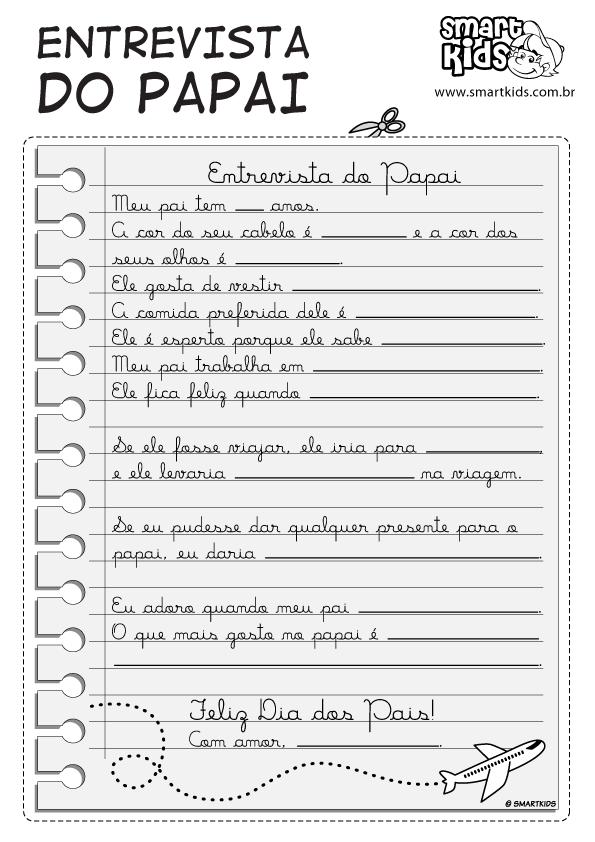 ENTREVISTA
DO PAPAI
smart
kids
www.smartkids.com.br
Entrevista do Papai
Meu pai tem ___ anos.
A cor do seu cabelo é _________ e a cor dos
seus olhos é ___________.
Ele gosta de vestir __________________________.
A comida preferida dele é ___________________.
Ele é esperto porque ele sabe _________________.
Meu pai trabalha em ________________________.
Ele fica feliz quando ________________________.
Se ele fosse viajar, ele iria para ____________,
e ele levaria ___________________ na viagem.
Se eu pudesse dar qualquer presente para o
papai, eu daria _____________________________.
Eu adoro quando meu pai ___________________.
O que mais gosto no papai é ________________
______________________________________________.
Feliz Dia dos Pais!
Com amor, _______________.
© SMARTKIDS